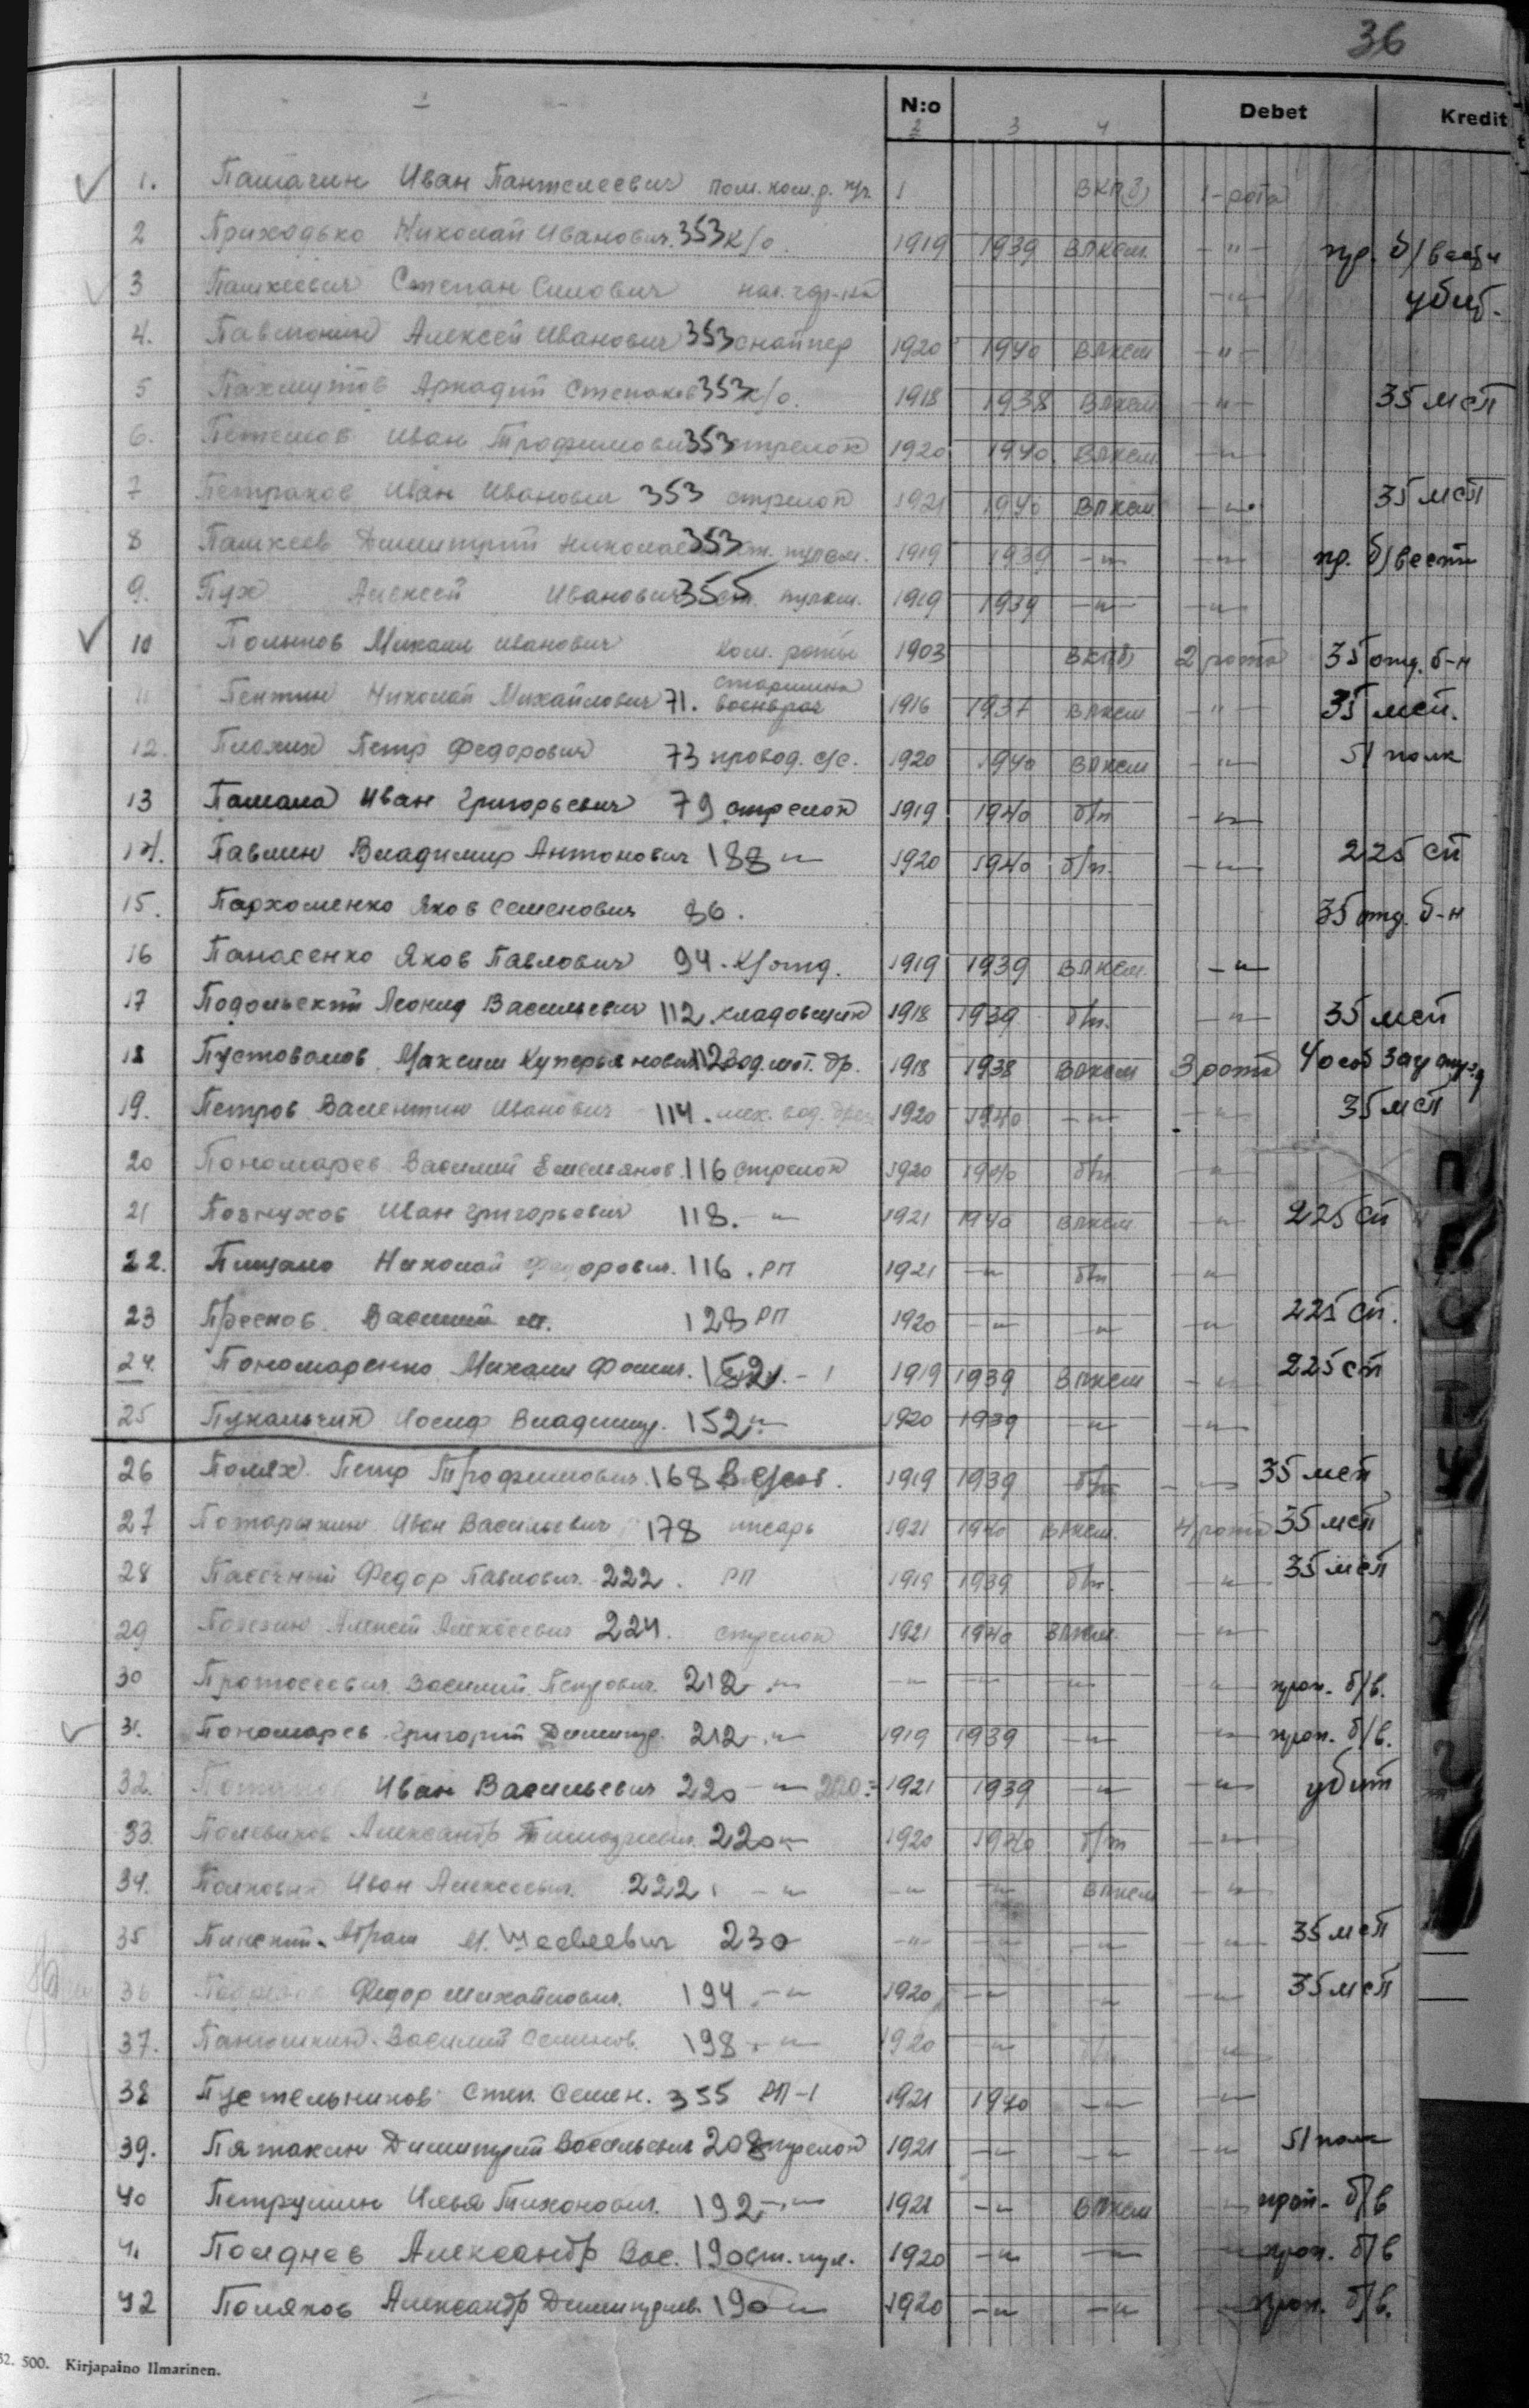 36
N:o Debet Kredit
2 3 4
1. Пашагин Иван Пантелеевич пом. ком. р. 1 ВКП(б) 1-рота
2 Приходько Николай Иванович. 353 к/о. 1919 1939 ВЛКСМ. -"- пр. б/вести
3 Пашкевич Степан Силович -"- убит.
4. Павлонин Алексей Иванович 353 снайпер 1920 1940 ВЛКСМ -"-
5 Пахмутов Аркадий Степанов 353 к/о. 1918 1938 ВЛКСМ -"- 35 мсп
6. Петешов Иван Трофимови 353 стрелок 1920 1940. ВЛКСМ -"-
7 Петраков Иван Иванович 353 стрелок 1921 1940 ВЛКСМ -"- 35 мсп
8 Пашкеев Димитрий Николае 353 ст. пулем. 1919 1939 -"- -"- пр. б/вести
9. Пух Алексей Иванович 355 ст. пулем. 1919 1939 -"- -"-
10 Полынов Михаил Иванович Ком. роты 1903 ВКП(б) 2 рота 35 отд. б-н
старшина
11 Пентин Николай Михайлович 71. военврач 1916 1937 ВЛКСМ -"- 35 мсп.
12. Плохих Петр Федорович 73 провод. с/с. 1920 1940 ВЛКСМ -"- 51 полк
13 Памала Иван Григорьевич 79 стрелок 1919 1940 б/п -"-
14. Павлин Владимир Антонович 188 -"- 1920 1940 б/п. -"- 225 сп
15. Пархоменко Яков Семенович 86. 35 отд. б-н
16 Панасенко Яков Павлович 94. К/отд. 1919 1939 ВЛКСМ. -"-
17 Подольский Леонид Васильевич 112. кладовщик 1918 1939 б/п. -"- 35 мсп
18 Пустовалов Максим Куперьянович 112 вод. мот. др. 1918 1938 ВЛКСМ 3 рота
19. Петров Валентин Иванович 114. мех. вод. 1920 1940 -"- -"- 35 мсп
20 Пономарев Василий Емельянов. 116 стрелок 1920 1940 б/п -"-
21 Познухов Иван Григорьевич 118. -"- 1921 1940 ВЛКСМ -"- 225 сп
22. Пищало Николай Федорович. 116. РП 1921 -"- б/п -"-
23 Преснов. Василий 128 РП 1920 -"- -"- -"- 225 сп.
24. Пономаренко Михаил Фомич. 1919 1939 ВЛКСМ -"- 225 сп
25 Пукальчик Иосиф Владимир. 152 -"- 1920 1939 -"- -"-
26 Полях. Петр Трофимович. 168 1919 1939 б/п -"- 35 мсп
27 Потарыкин Иван Васильевич 178 писарь 1921 1940 ВЛКСМ. 4 рота 35 мсп
28 Пасечный Федор Павлович. 222. РП 1919 1939 б/п. -"- 35 мсп
29 Полезин Алексей Алексеевич 224. стрелок 1921 1940 ВЛКСМ. -"-
30 Протосевич. Василий. Петрович. 212 -"- -"- -"- -"- -"- проп. б/в.
31. Пономарев Григорий Димитр. 212 -"- 1919 1939 -"- -"- проп. б/в.
32. Иван Васильевич 220 -"- 1921 1939 -"- -"- убит
33. Полевиков Александр Тимофеевич. 220 -"- 1920 1940 б/п -"-
34. Иван Алексеевич. 222 -"- -"- -"- ВЛКСМ -"-
35 Пинский Абрам 230 -"- -"- -"- -"- 35 мсп
36 Федор Михайлович. 194 -"- 1920 -"- -"- -"- 35 мсп
37. Панюшкин. Василий Семенов. 198 -"- 1920 -"- б/п -"-
38 Пустельников Степ. Семен. 355 РП-1 1921 1940 -"- -"-
39. Пятакин Димитрий Васильевич 208 стрелок 1921 -"- -"- -"- 51 полк
40 Петрушин Илья Тихонович. 192 -"- 1921 -"- ВЛКСМ -"- проп. б/в
41 Полднев Александр Вас. 190 ст. пул. 1920 -"- -"- -"- проп. б/в
42 Поляков Александр Димитриев. 190 -"- 1920 -"- -"- -"- проп. б/в.
500. Kirjapaino Ilmarinen.